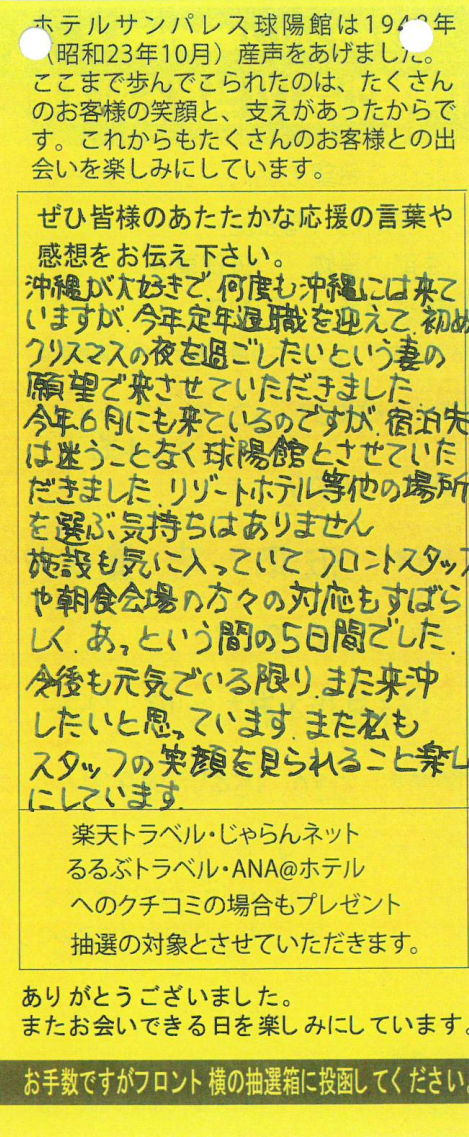 ホテルサンパレス球陽館は1948年
（昭和23年10月）産声をあげました。
ここまで歩んでこられたのは、たくさん
のお客様の笑顔と、支えがあったからで
す。これからもたくさんのお客様との出
会いを楽しみにしています。
ぜひ皆様のあたたかな応援の言葉や
感想をお伝え下さい。
沖縄が大好きで、何度も沖縄には来て
いますが、今年定年退職を迎えて、初め
クリスマスの夜を過ごしたいという妻の
願望で来させていただきました
今年6月にも来ているのですが、宿泊先
は迷うことなく球陽館とさせていた
だきました、リゾートホテル等他の場所
を選ぶ気持ちはありません
施設も気に入っていて、フロントスタッフ
や朝食会場の方々の対応もすばら
しく、あっという間の5日間でした、
今後も元気でいる限り、また来沖
したいと思っています、また私も
スタッフの笑顔を見られること楽し
にしています、
楽天トラベル・じゃらんネット
るるぶトラベル・ANA@ホテル
へのクチコミの場合もプレゼント
抽選の対象とさせていただきます。
ありがとうございました。
またお会いできる日を楽しみにしています。
お手数ですがフロント横の抽選箱に投函してください。